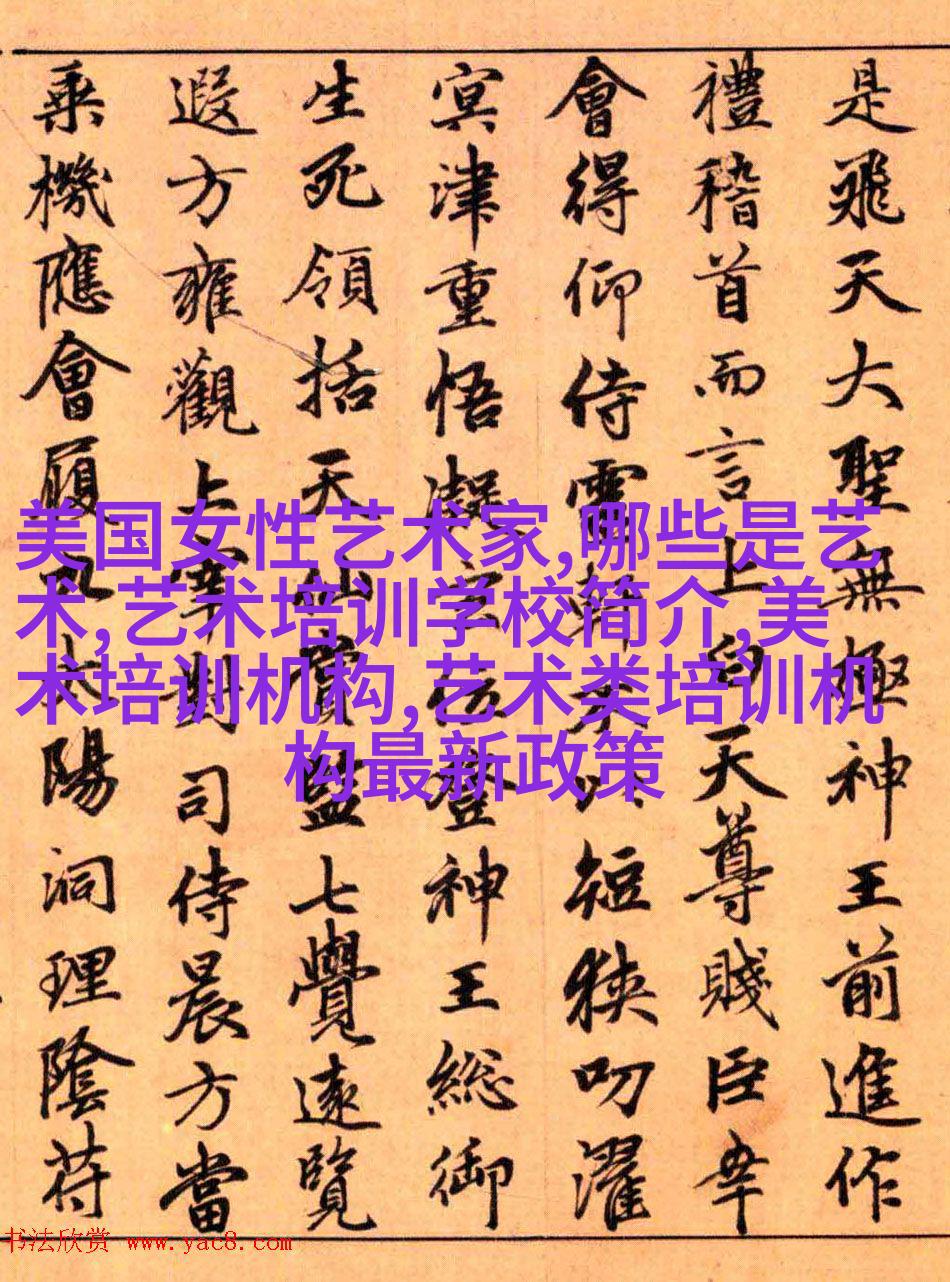 是飛天大聖無極神王前進作
禮稽首而言上白天尊賤臣幸
會得仰侍靈不以短狹叨濯
冥津重悟凝玄登神王総御
生死領括天仙寶監七覺遠覽
遐方雍觀上宰對司侍晨方當
乗機應會履太陽洞理陰苻
美国女性艺术家,哪些是艺
术,艺术培训学校简介,美
术培训机构,艺术类培训机
构最新政策
书法欣赏 www.yac8.com